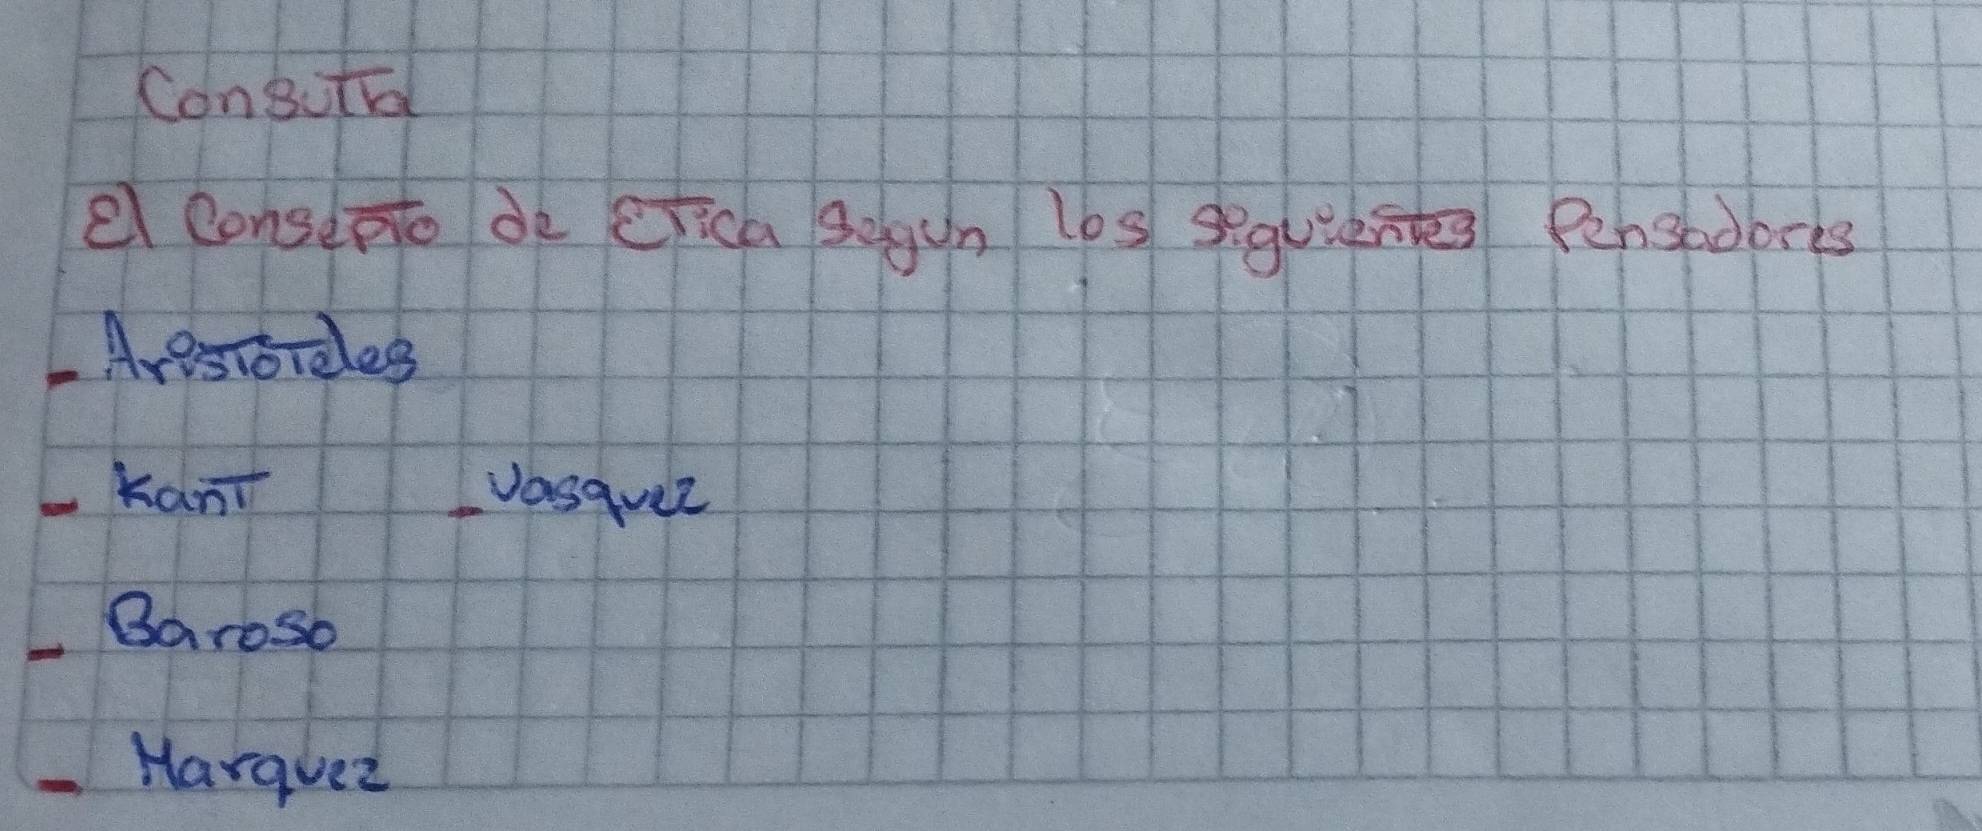 Consulta
El Consepto de Etica Segun los siguientes Pensadores
- Aristoteles
- Kant - Vasquez
- Baroso
- Marquez